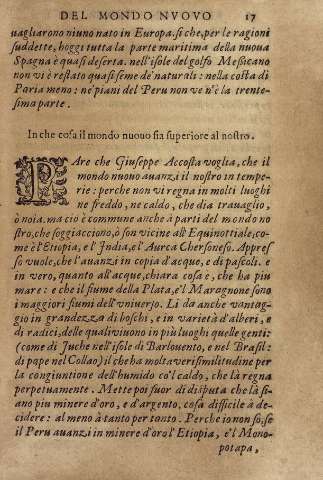 DEL MONDO NVOVO 17
uagliarono niuno nato in Europa. si che, per le ragioni
suddette, hoggi tutta la parte maritima della nuoua
Spagna è quasi deserta. nell'isole del golfo Messicano
non vi è restato quasi seme de' naturali: nella costa di
Paria meno: ne' piani del Peru non ve n'è la trente-
sima parte.
In che cosa il mondo nuouo sia superiore al nostro.
PAre che Giuseppe Accosta voglia, che il
mondo nuouo auanzi il nostro in tempe-
rie: perche non vi regna in molti luoghi
ne freddo, ne caldo, che dia trauaglio,
ò noia. ma ciò è commune anche à parti del mondo no
stro, che soggiacciono, ò son vicine all'Equinottiale, co-
me è l'Etiopia, e l'India, el'Aurea Chersoneso. Appres
so vuole, che l'auanzi in copia d'acque, e di pascoli. e
in vero, quanto all'acque, chiara cosa e, che ha piu
mare: e che il fiume della Plata, e'l Maragnone sono
i maggiori fiumi dell'vniuerso. Li da anche vantag-
gio in grandezza di boschi, e in varietà d'alberi, e
di radici, delle quali viuono in piu luoghi quelle genti:
(come di Iuche nell'isole di Barlouento, e nel Brasil:
di pape nel Collao) il che ha molta verisimilitudine per
la congiuntione dell'humido co'l caldo, che là regna
perpetuamente. Mette poi fuor di disputa che là sia-
no piu minere d'oro, e d'argento, cosa difficile à de-
cidere: al meno à tanto per tanto. Perche io non so, se
il Peru auanzi in minere d'oro l'Etiopia, e'l Mono-
potapa,